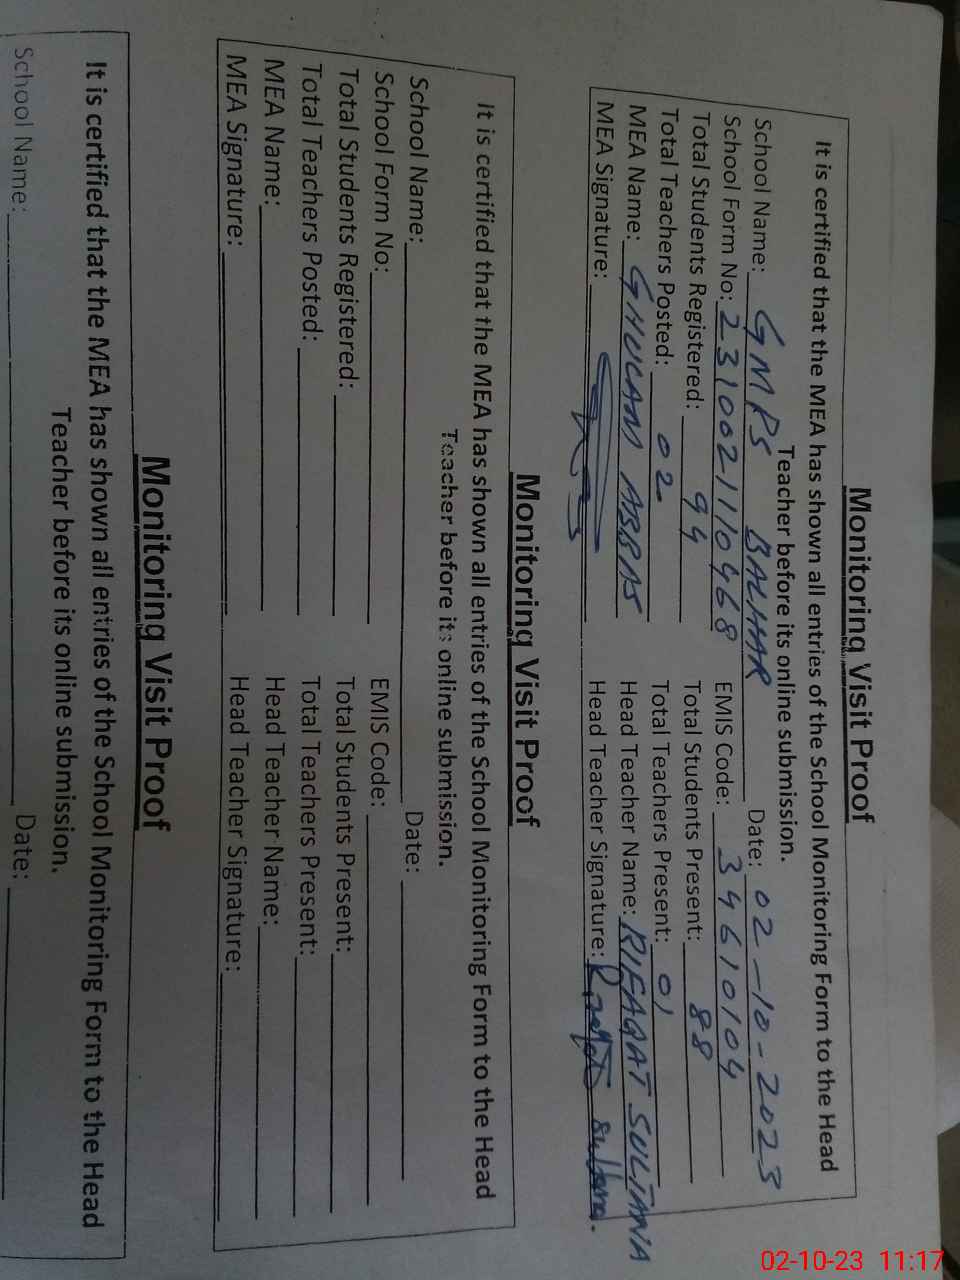 Monitoring Visit Proof
It is certified that the MEA has shown all entries of the School Monitoring Form to the Head
Teacher before its online submission.
School Name: GMPS BALHAR Date: 02-10-2023
School Form No: 2310021110468 EMIS Code: 34610104
Total Students Registered: 94 Total Students Present: 88
Total Teachers Posted: 02 Total Teachers Present: 01
MEA Name: GHULAM ABBAS Head Teacher Name: RIFAQAT SULTANA
MEA Signature: Head Teacher Signature:
Monitoring Visit Proof
It is certified that the MEA has shown all entries of the School Monitoring Form to the Head
Teacher before its online submission.
School Name: Date:
School Form No: EMIS Code:
Total Students Registered: Total Students Present:
Total Teachers Posted: Total Teachers Present:
MEA Name: Head Teacher Name:
MEA Signature: Head Teacher Signature:
Monitoring Visit Proof
It is certified that the MEA has shown all entries of the School Monitoring Form to the Head
Teacher before its online submission.
School Name: Date:
02-10-23 11:17